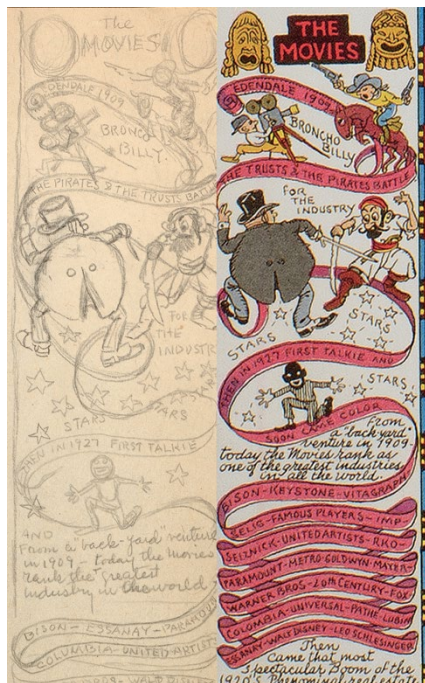 The
MOVIES
EDENDALE 1909
BRONCHO
BILLY.
THE PIRATES & THE TRUSTS BATT
FOR
THE
INDUSTR
STARS
THEN IN 1927 FIRST TALKIE
AND
From a "back-yard" venture
in 1909 - today the movies
rank the greatest
industry in the world
BISON - ESSANAY - PARAMOUN
COLUMBIA - UNITED ARTIST
THE
MOVIES
EDENDALE 1909
BRONCHO
BILLY
THE TRUSTS & THE PIRATES BATTLE
FOR
THE
INDUSTRY
STARS
STARS
THEN IN 1927 FIRST TALKIE AND
STARS
SOON CAME COLOR
From
a "back yard"
venture in 1909-
today the Movies rank as
one of the greatest industries
in all the world.
BISON-KEYSTONE-VITAGRAPH
SELIG-FAMOUS PLAYERS-IMP-
SELZNICK-UNITED ARTISTS-RKO-
PARAMOUNT-METRO-GOLDWYN-MAYER-
WARNER BROS-20th CENTURY-FOX
COLUMBIA-UNIVERSAL-PATHE-LUBIN
ESSANAY-WALT DISNEY-LEO SCHLESINGER
Then
came that most
Spectacular Boom of the
1920's Phenomenal real estate